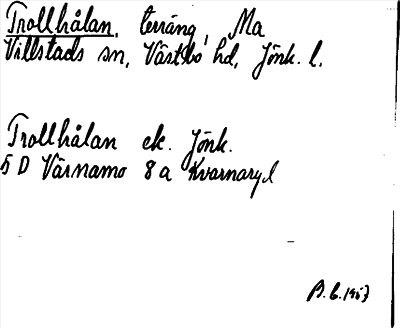 Trollhålan, terräng, Ma
Villstads sn, Västbo hd, Jönk. l.
Trollhålan ek. Jönk.
5 D Värnamo 8 a Kvarnaryd
B.G. 1957